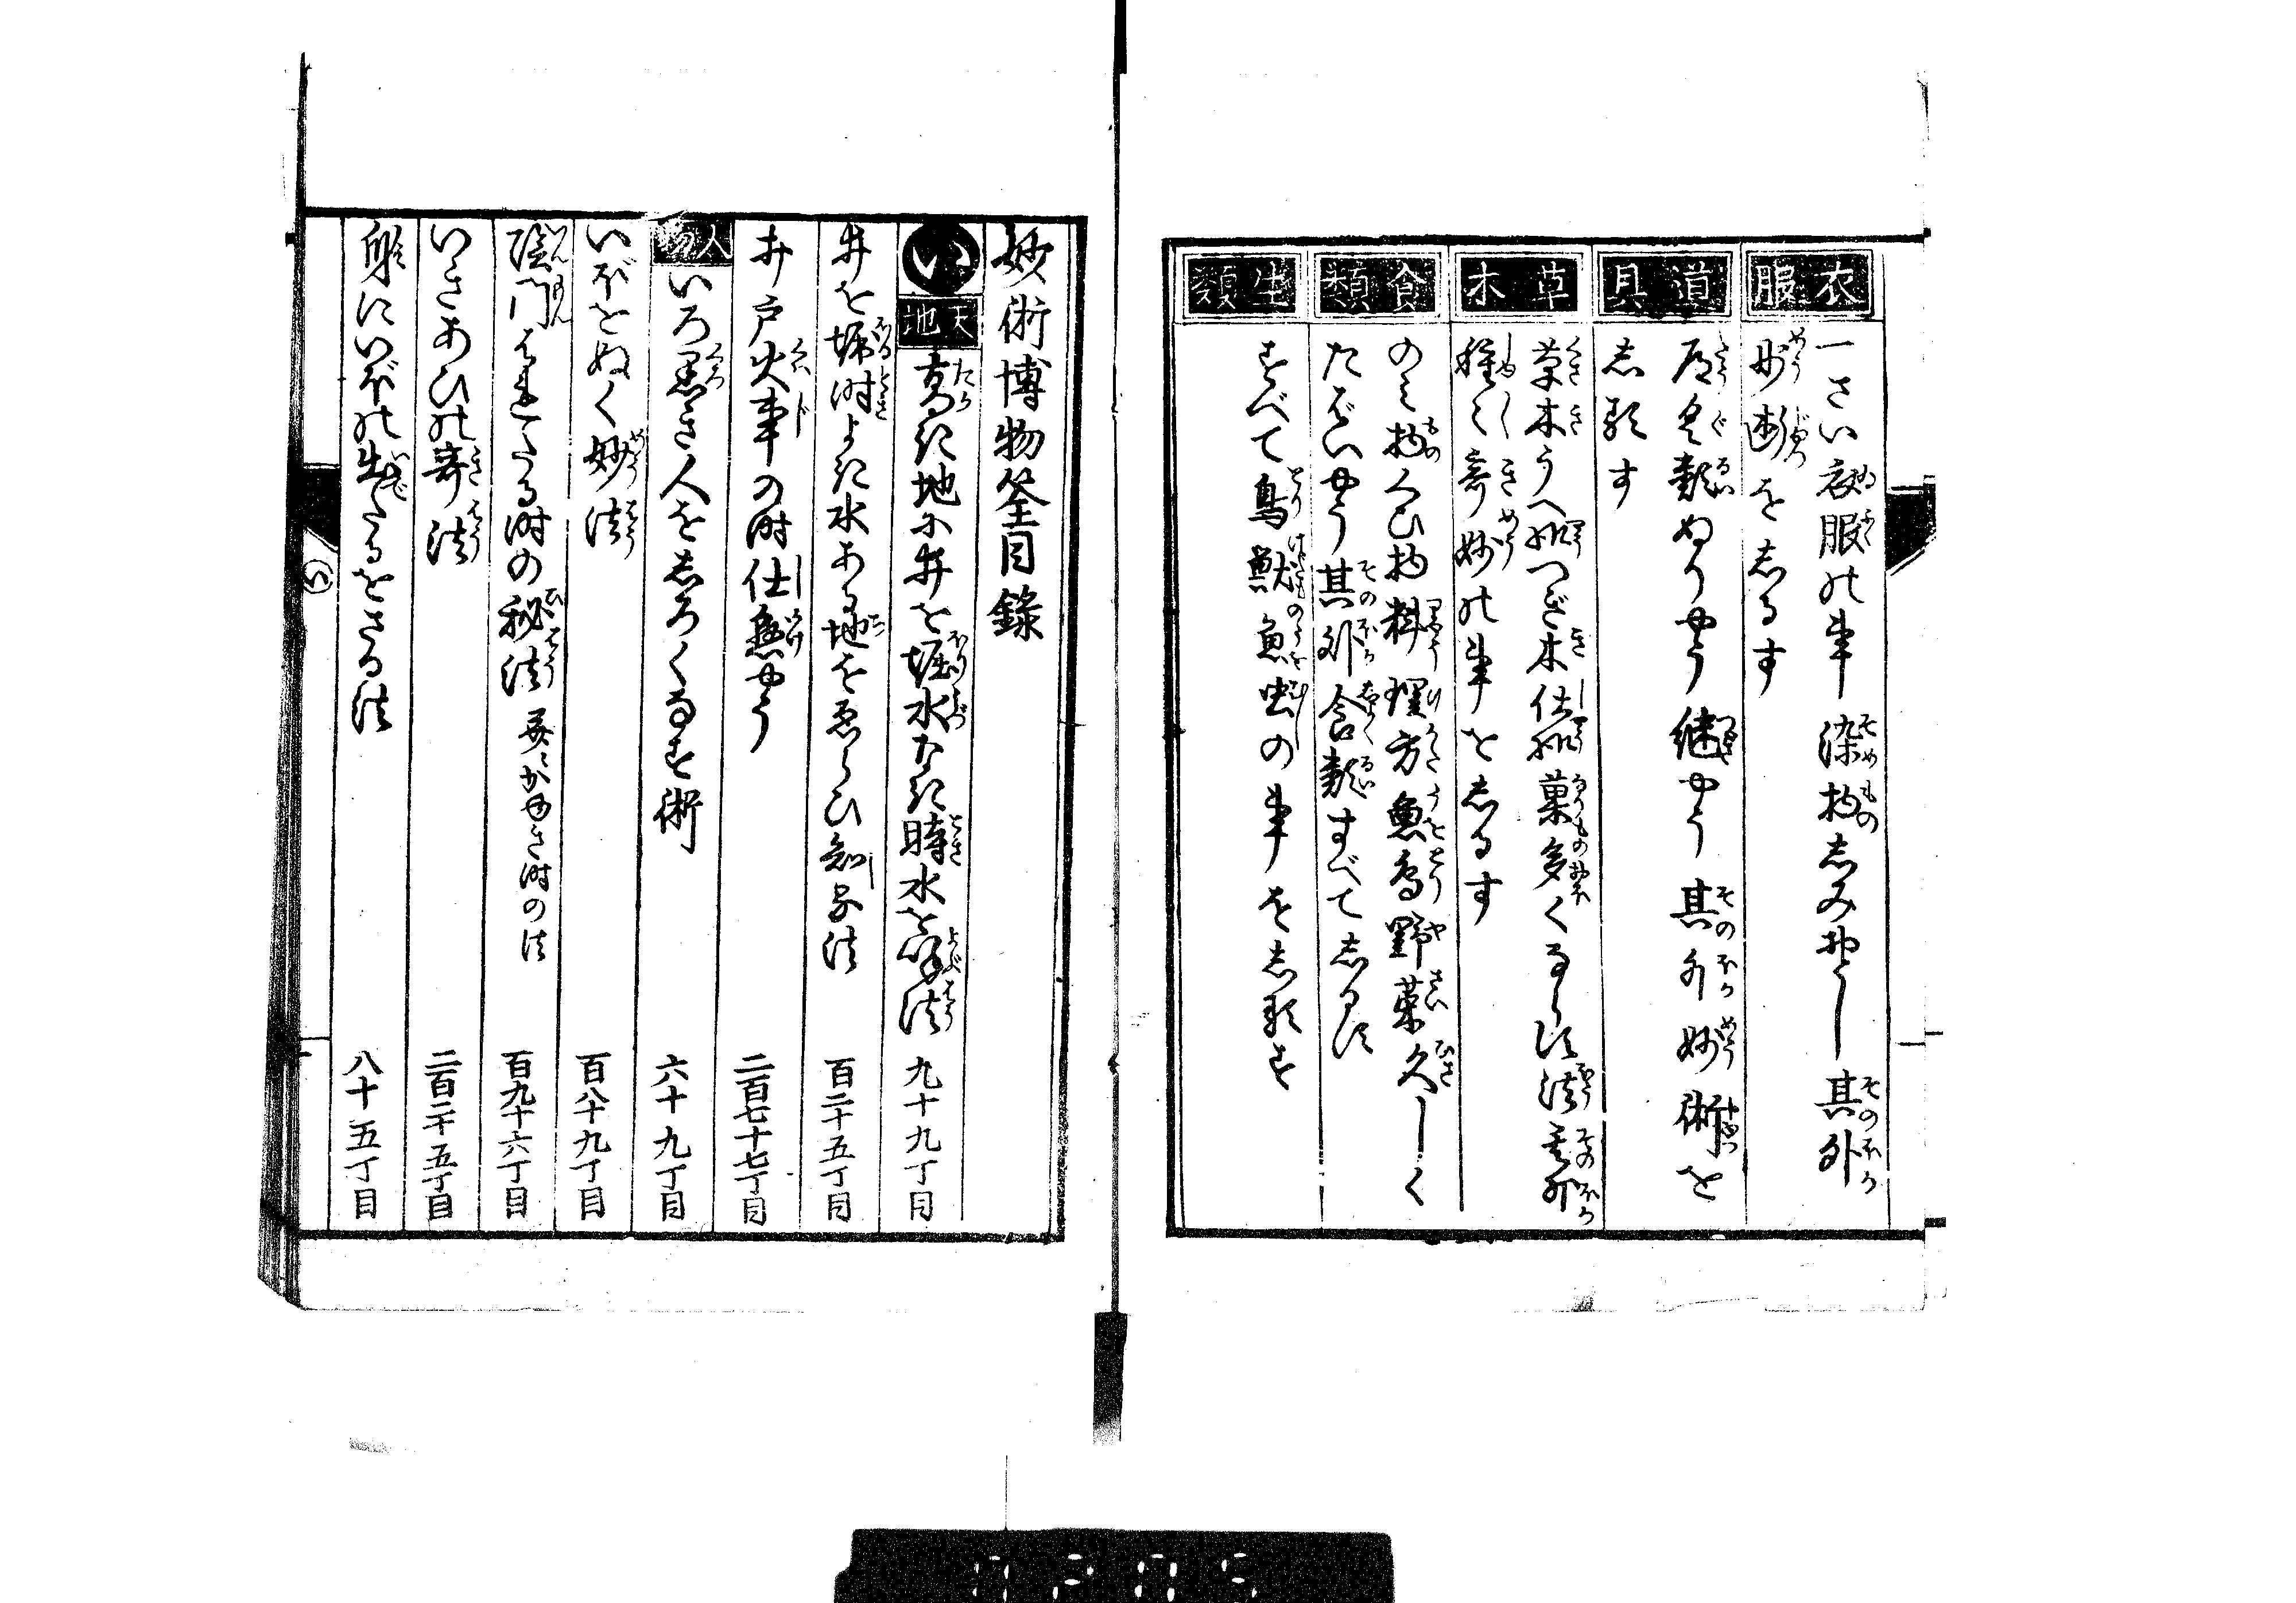 衣服
一さい衣服の事 染物しみおとし 其外
妙術をしるす
道具
道具類ぬりやう 継やう 其外妙術を
しるす
草木
草木うへやうつぎ木仕やう菓多くならす法其外
種々奇妙の事をしるす
食類
のみ物くひ物料理方魚鳥野菜久しく
たばいやう其外食類すべてしるす
生類
すべて鳥獣魚虫の事をしるす
妙術博物筌目録
い
天地
高き地に井を堀水なき時水を呼法 九十九丁目
井を堀時よき水ある地をゑらひ知る法 百二十五丁目
井戸火事の時仕懸やう 二百七十七丁目
人物
いろ黒き人をしろくなす術 六十九丁目
いぼをぬく妙法 百八十九丁目
陰門はれたる時の秘法 并ニかゆき時の法 百九十六丁目
いきあひの奇法 二百二十五丁目
身にいぼの出たるをさる法 八十五丁目
い